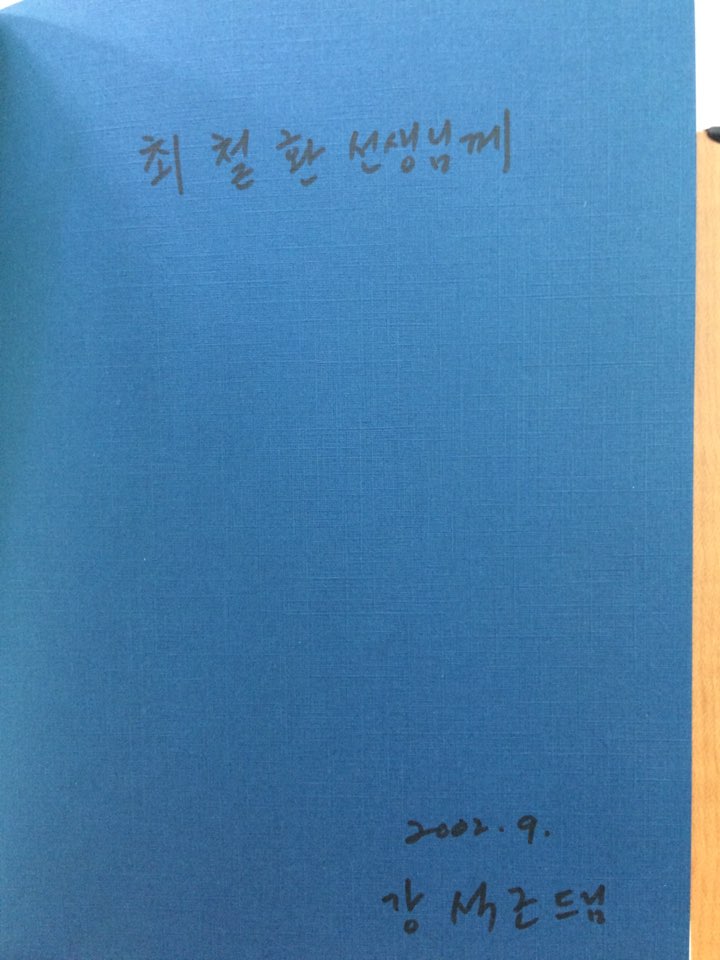 최철환 선생님께
2002. 9.
강석근 드림